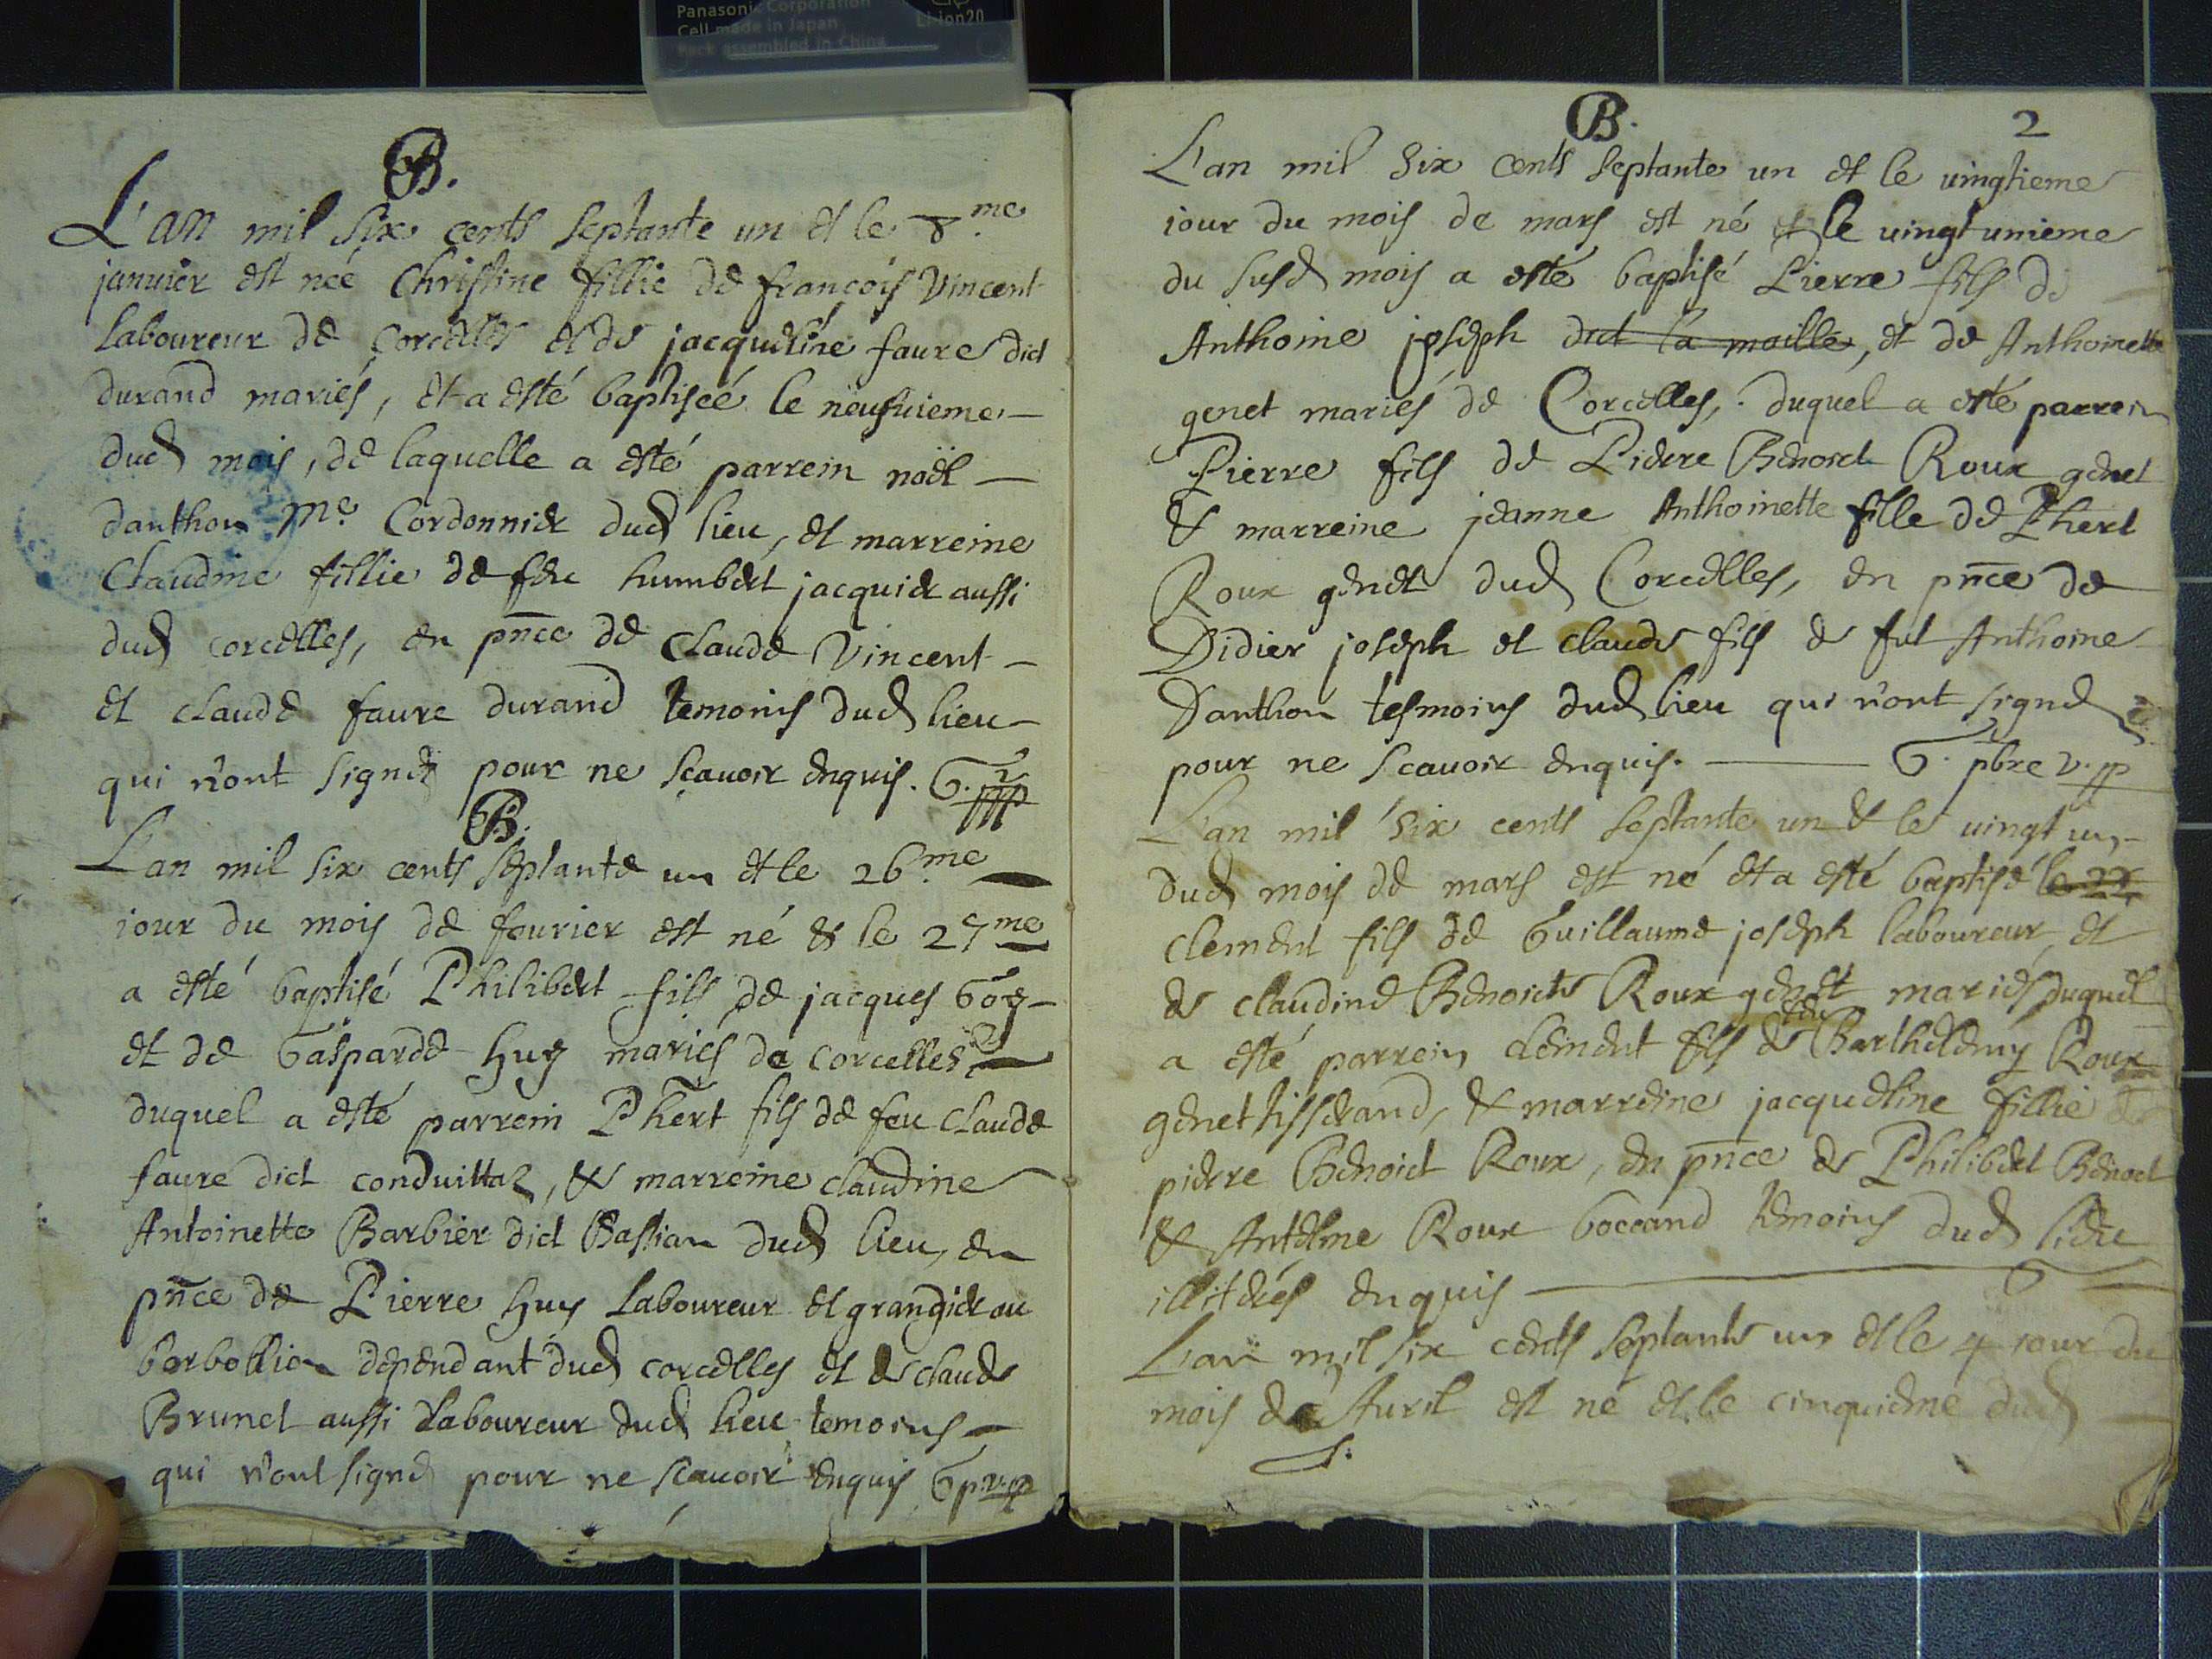 Panasonic Corporation
Cell made in Japan
Li-ion20
Pack assembled in China
B.
L'an mil six cents septante un et le 8.me
januier est née Christine fillie de françois Vincent
laboureur de Corcelles et de jacqueline faure dict
durand mariés, et a esté baptiseé le neufuieme —
dud mois, de laquelle a esté parrein noël —
danthon Me Cordonnier dud lieu, et marreine
Claudine fillie de feu humbert jacquier aussi
dud corcelles, en pnce de Claude Vincent —
et claude faure durand temoins dud lieu —
qui n'ont signés pour ne sçauoir enquis. G.
B.
L'an mil six cents septante un et le 26.me —
iour du mois de feurier est né & le 27me
a esté baptisé Philibert fils de jacques Goy —
et de Gasparde Huy mariés de corcelles —
duquel a esté parrein Phert fils de feu claude
faure dict conduittaz, & marreine claudine
Antoinette Barbier dict Bastian dud lieu, en
pnce de Pierre Huy Laboureur et grangier au
borbollion dependant dud corcelles et de claude
Brunet aussi Laboureur dud lieu temoins —
qui n'ont signé pour ne scauoir enquis G p.v.p
B. 2
L'an mil six cents septante un et le uingtieme
iour du mois de mars est né & le uingtunieme
du susd mois a esté baptisé Pierre fils de
Anthoine joseph dict la maille, et de Anthoinette
genet mariés de Corcelles, duquel a esté parrein
Pierre fils de Pierre Benoict Roux genet
& marreine jeanne Anthoinette fille de Phert
Roux genet dud Corcelles, en pnce de
Didier joseph et claude fils de fut Anthoine
Danthon tesmoins dud lieu qui n'ont signé
pour ne scauoir enquis. — G. pbre v. p
L'an mil six cents septante un & le uingt un —
dud mois de mars est né et a esté baptisé le 22
clement fils de Guillaume joseph laboureur et
de claudine Benoicte Roux genet mariés duquel
a esté parrein clement fils de feu Barthelemy Roux
genet tisserand, & marreine jacqueline fillie de
pierre Benoict Roux, en pnce de Philibert Benoict
& Antelme Roux boccand temoins dud lieu
illiterés enquis — G —
L'an mil six cents septante un et le 4 iour du
mois de Auril est né et le cinquieme dud